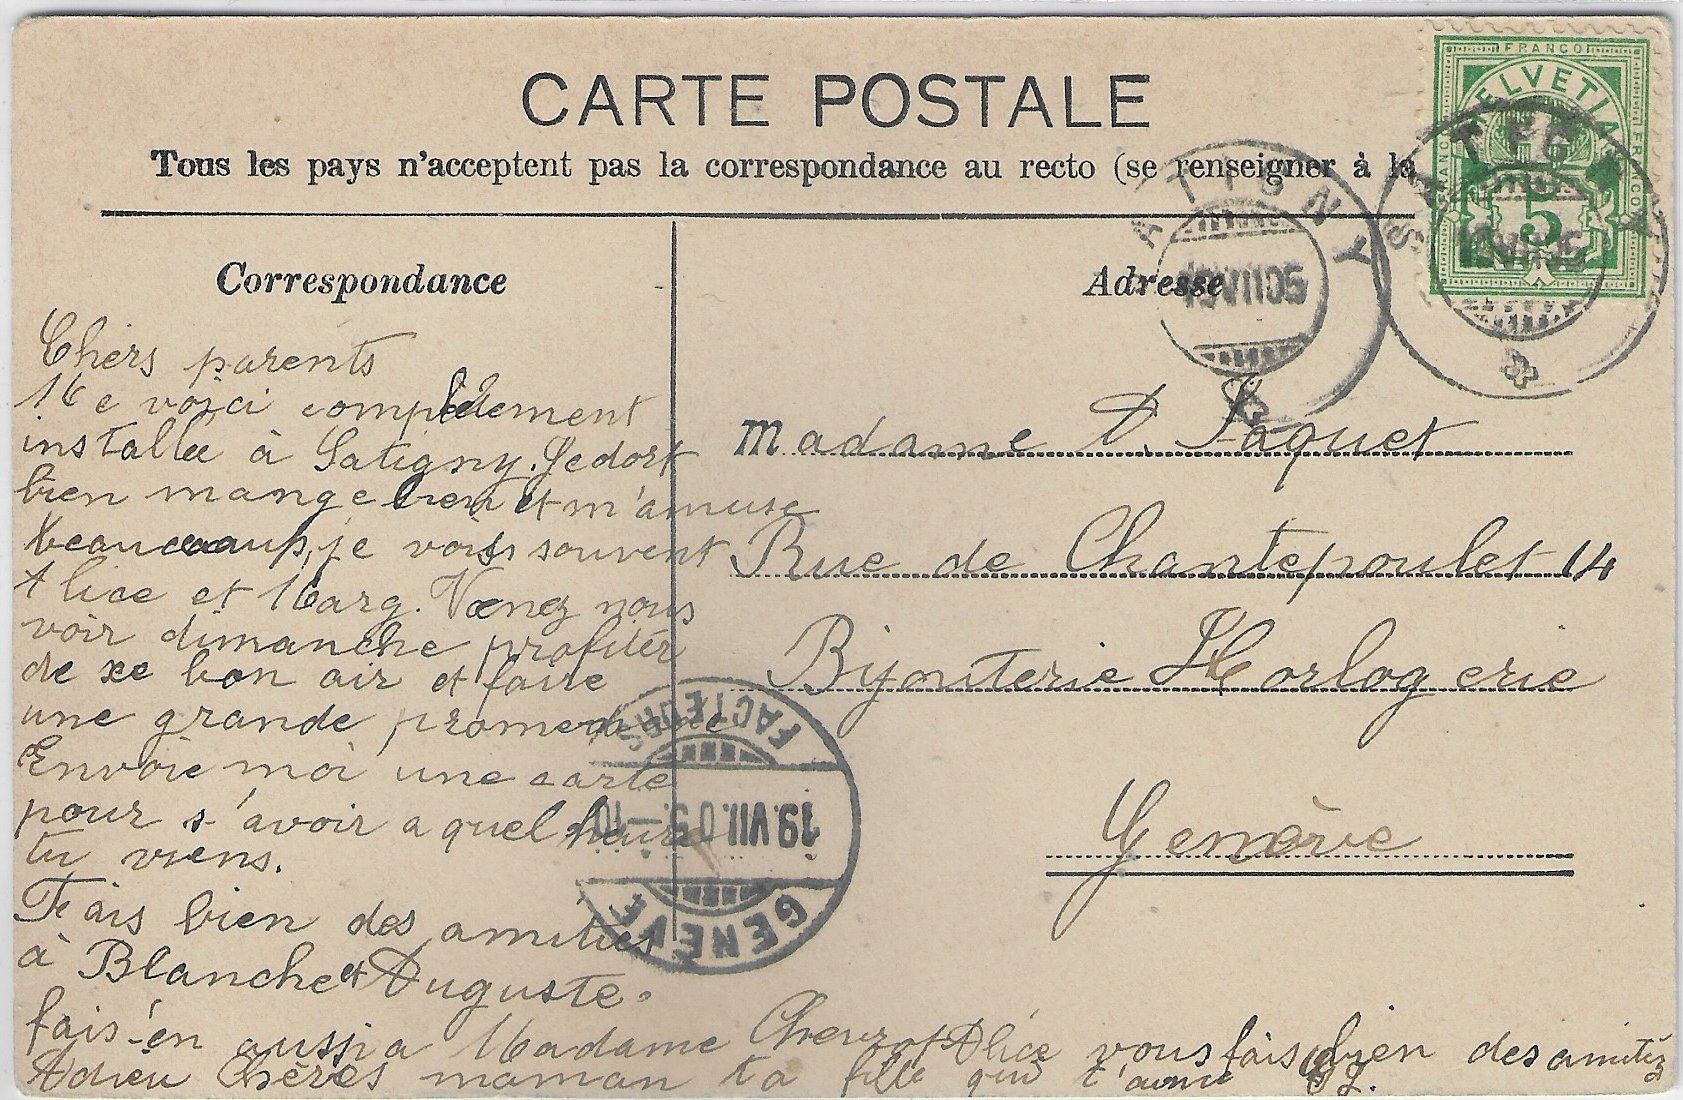 CARTE POSTALE
Tous les pays n'acceptent pas la correspondance au recto (se renseigner à la
Correspondance
Chers parents
Me voici complètement
installée à Satigny. Je dors
bien mange bien et m'amuse
beaucoup, je vois souvent
Alice et Marg. Venez nous
voir dimanche profiter
de xe bon air et faire
une grande promenade
Envoie moi une carte
pour s'avoir a quel heure
tu viens.
Fais bien des amitiés
à Blanche et Auguste.
fais-en aussi a Madame Alice vous fais bien des amitiés
Adieu Chères maman ta fille qui t'aime
Adresse
Madame A. Jaquet
Rue de Chantepoulet 14
Bijouterie Horlogerie
Genève
FRANCO
HELVETIA
FRANCO
FRANCO
5
SATIGNY
VII 05
SATIGNY
GENÈVE
19.VII.05.–10
FACTEURS